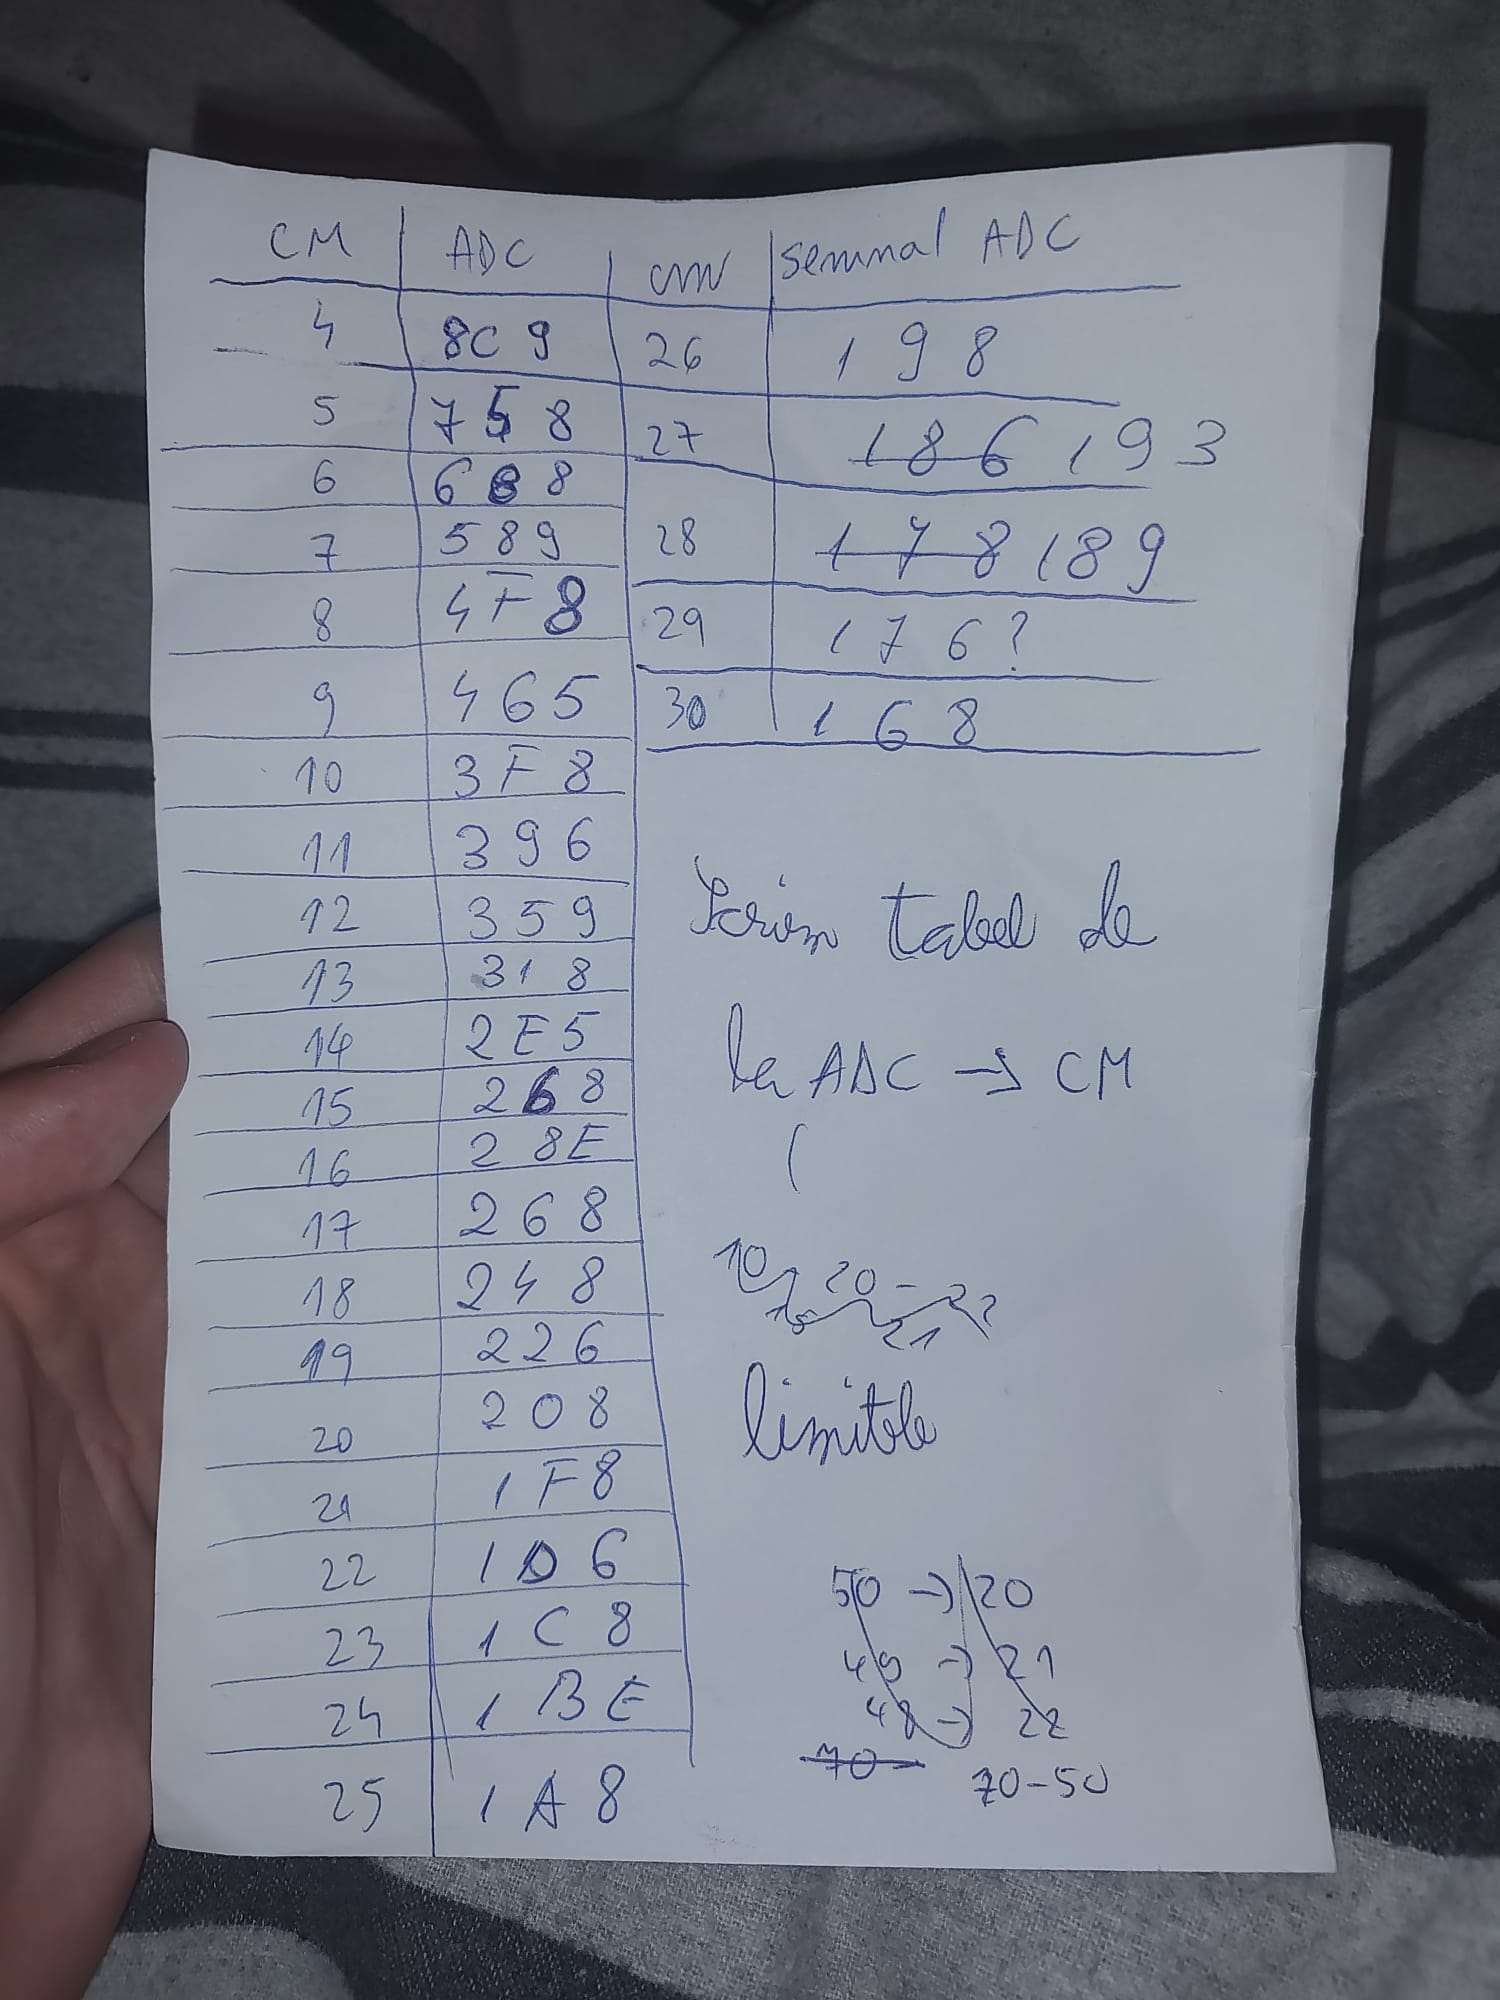 CM | ADC
4 | 8C9
5 | 758
6 | 688
7 | 589
8 | 4F8
9 | 465
10 | 3F8
11 | 396
12 | 359
13 | 318
14 | 2E5
15 | 268
16 | 28E
17 | 268
18 | 248
19 | 226
20 | 208
21 | 1F8
22 | 1D6
23 | 1C8
24 | 1BE
25 | 1A8
cm | semnal ADC
26 | 198
27 | 186 193
28 | 178 189
29 | 176?
30 | 168
Scriem tabel de
la ADC → CM
(
10 20 - 22
15 21
limitele
50 → 20
49 → 21
48 → 22
70-
70-50